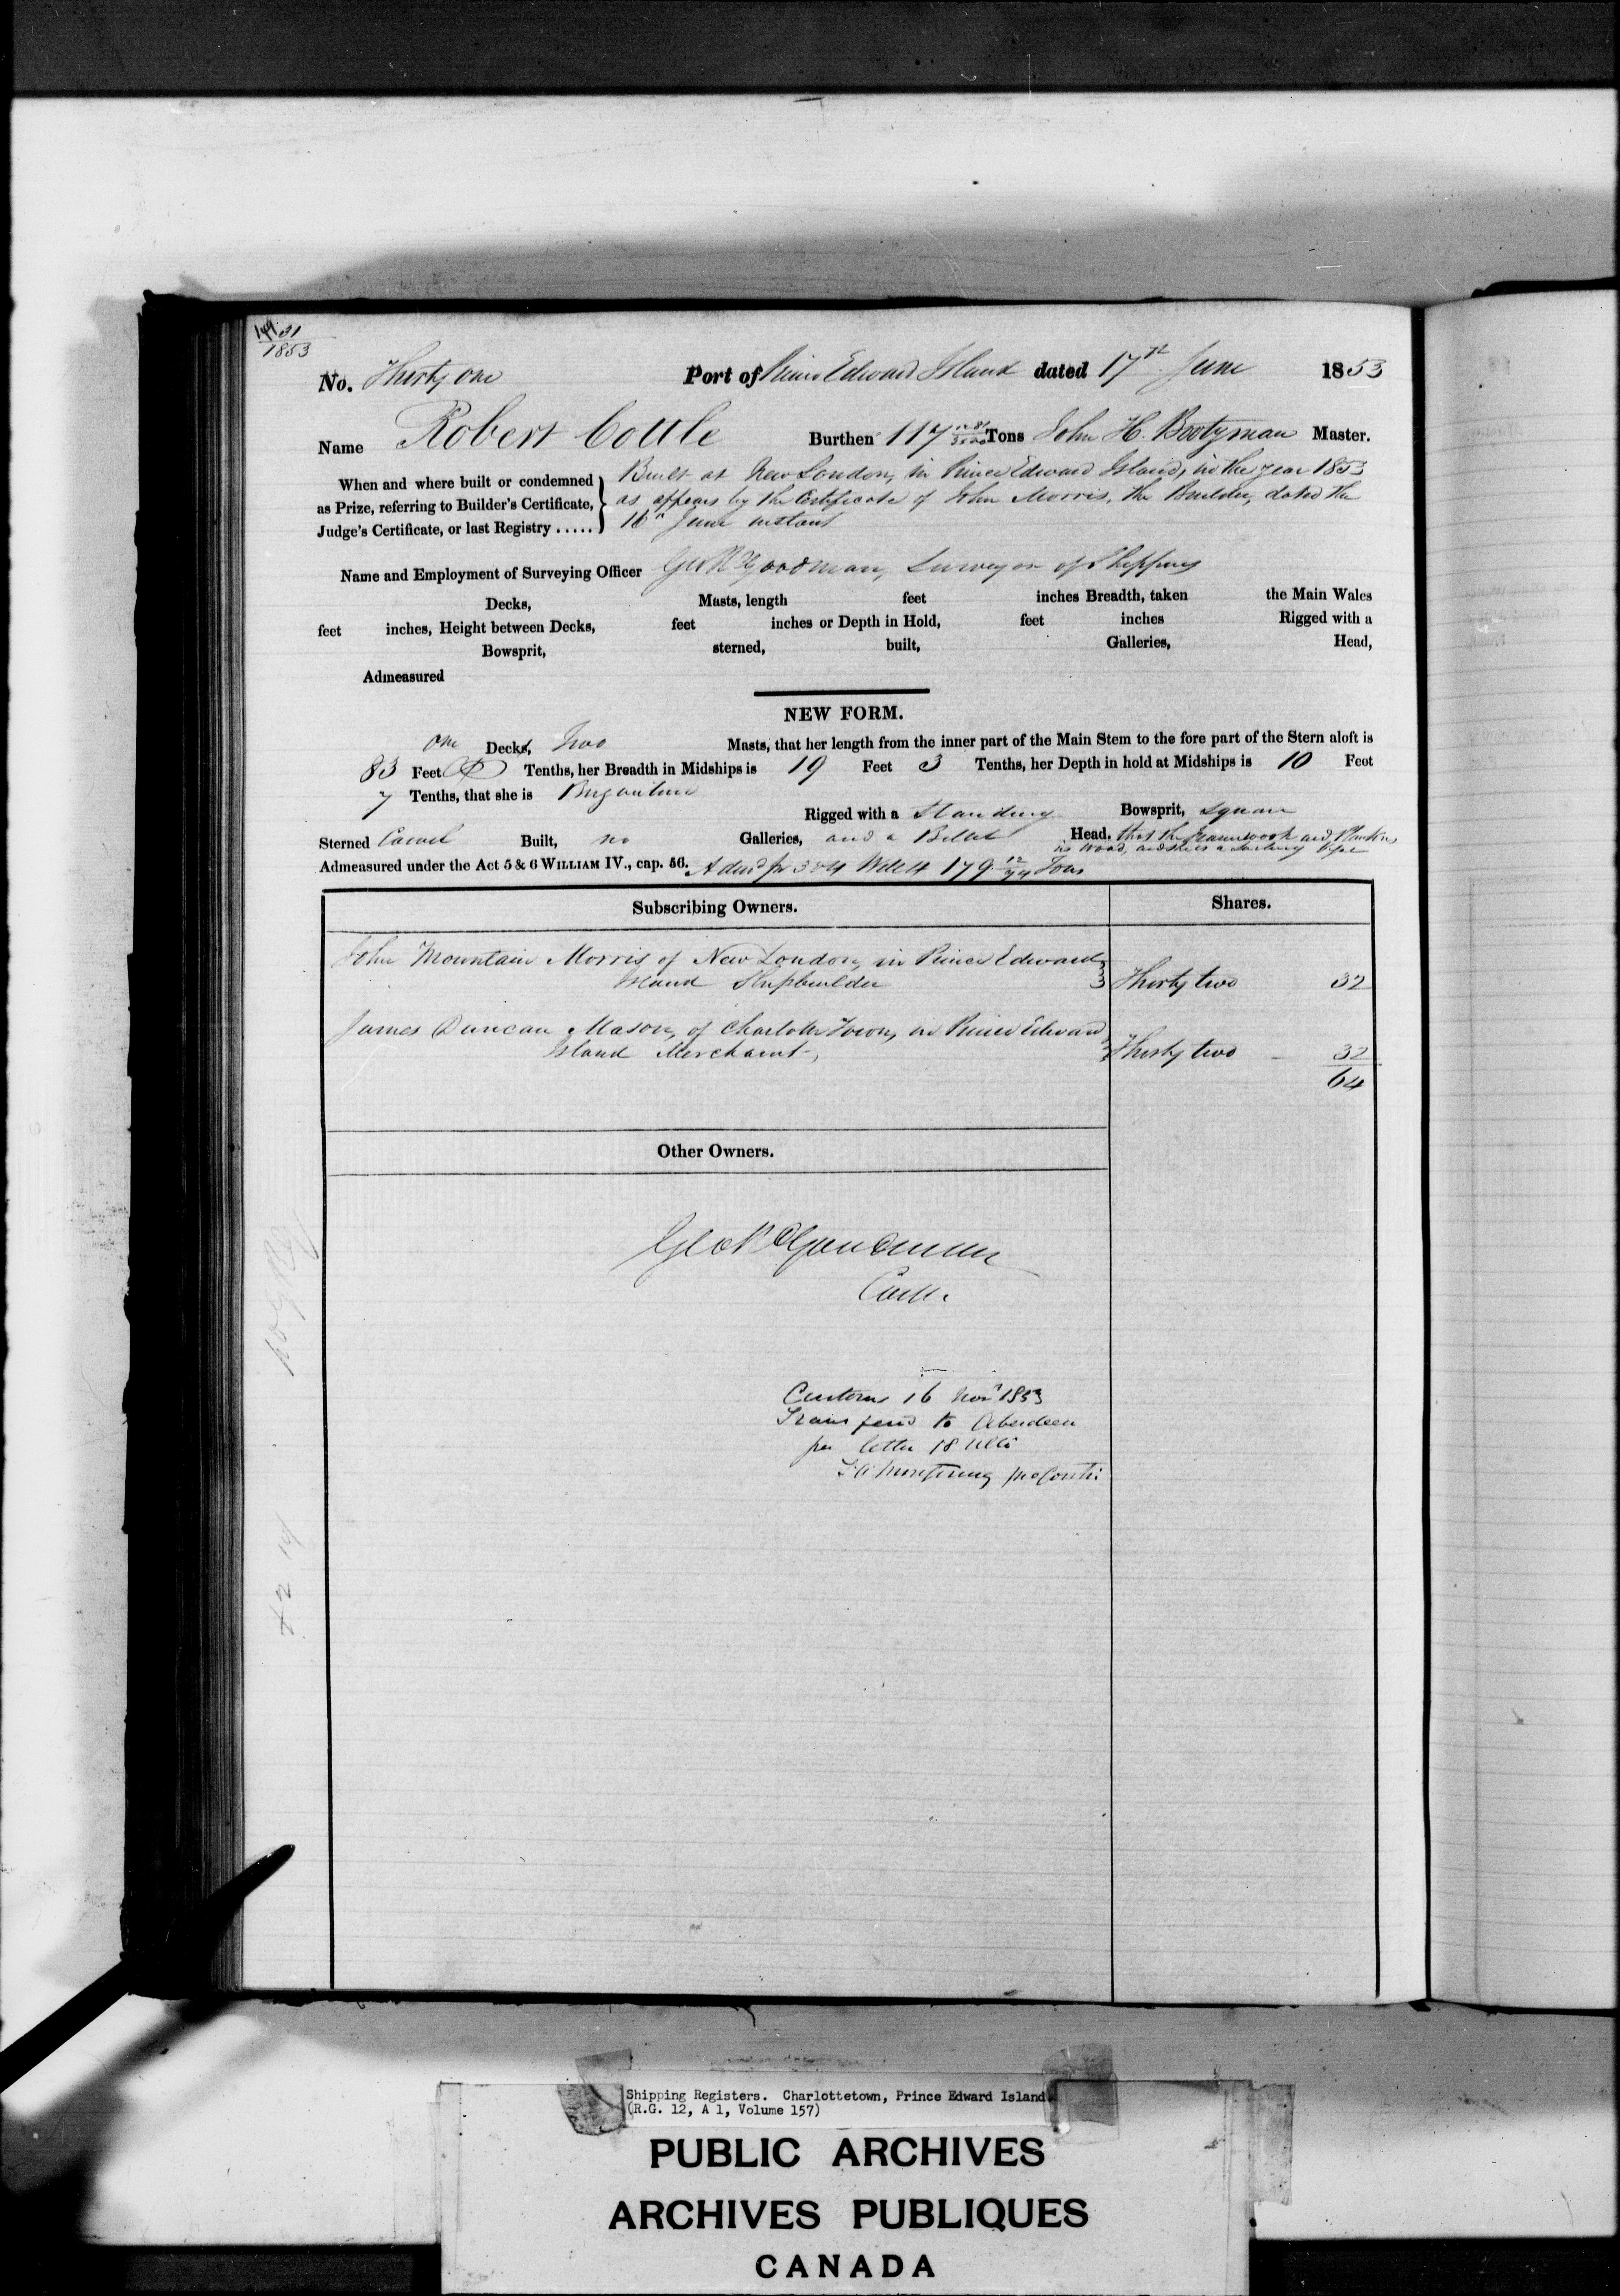 31
1853
No. Thirty one Port of Prince Edward Island dated 17th June 1853
Name Robert Cottle Burthen 117 Tons John H. Bootyman Master.
When and where built or condemned
as Prize, referring to Builder's Certificate,
Judge's Certificate, or last Registry .....
Built at New London, in Prince Edward Island, in the year 1853
as appears by the Certificate of John Morris, the Builder, dated the
16th June instant
Name and Employment of Surveying Officer Geo R Goodman, Surveyor of Shipping
Decks, Masts, length feet inches Breadth, taken the Main Wales
feet inches, Height between Decks, feet inches or Depth in Hold, feet inches Rigged with a
Bowsprit, sterned, built, Galleries, Head,
Admeasured
NEW FORM.
one Decks, Two Masts, that her length from the inner part of the Main Stem to the fore part of the Stern aloft is
83 Feet Tenths, her Breadth in Midships is 19 Feet 3 Tenths, her Depth in hold at Midships is 10 Feet
7 Tenths, that she is Brigantine
Rigged with a Standing Bowsprit, Square
Sterned Carvel Built, no Galleries, and a Billet Head, that the Framework and Planking
is Wood, and she is a Sailing Vessel
Admeasured under the Act 5 & 6 WILLIAM IV., cap. 56. 3 & 4 Will 4 179 Tons
Subscribing Owners. Shares.
John Mountain Morris of New London, in Prince Edward
Island Shipbuilder Thirty two 32
James Duncan Mason, of Charlotte Town, in Prince Edward
Island Merchant, Thirty two - 32
64
Other Owners.
Geo R Goodman
Coll.
Customs 16 Novr 1853
Transferred to Aberdeen
per letter 18 Ulto
Shipping Registers. Charlottetown, Prince Edward Island
(R.G. 12, A 1, Volume 157)
PUBLIC ARCHIVES
ARCHIVES PUBLIQUES
CANADA